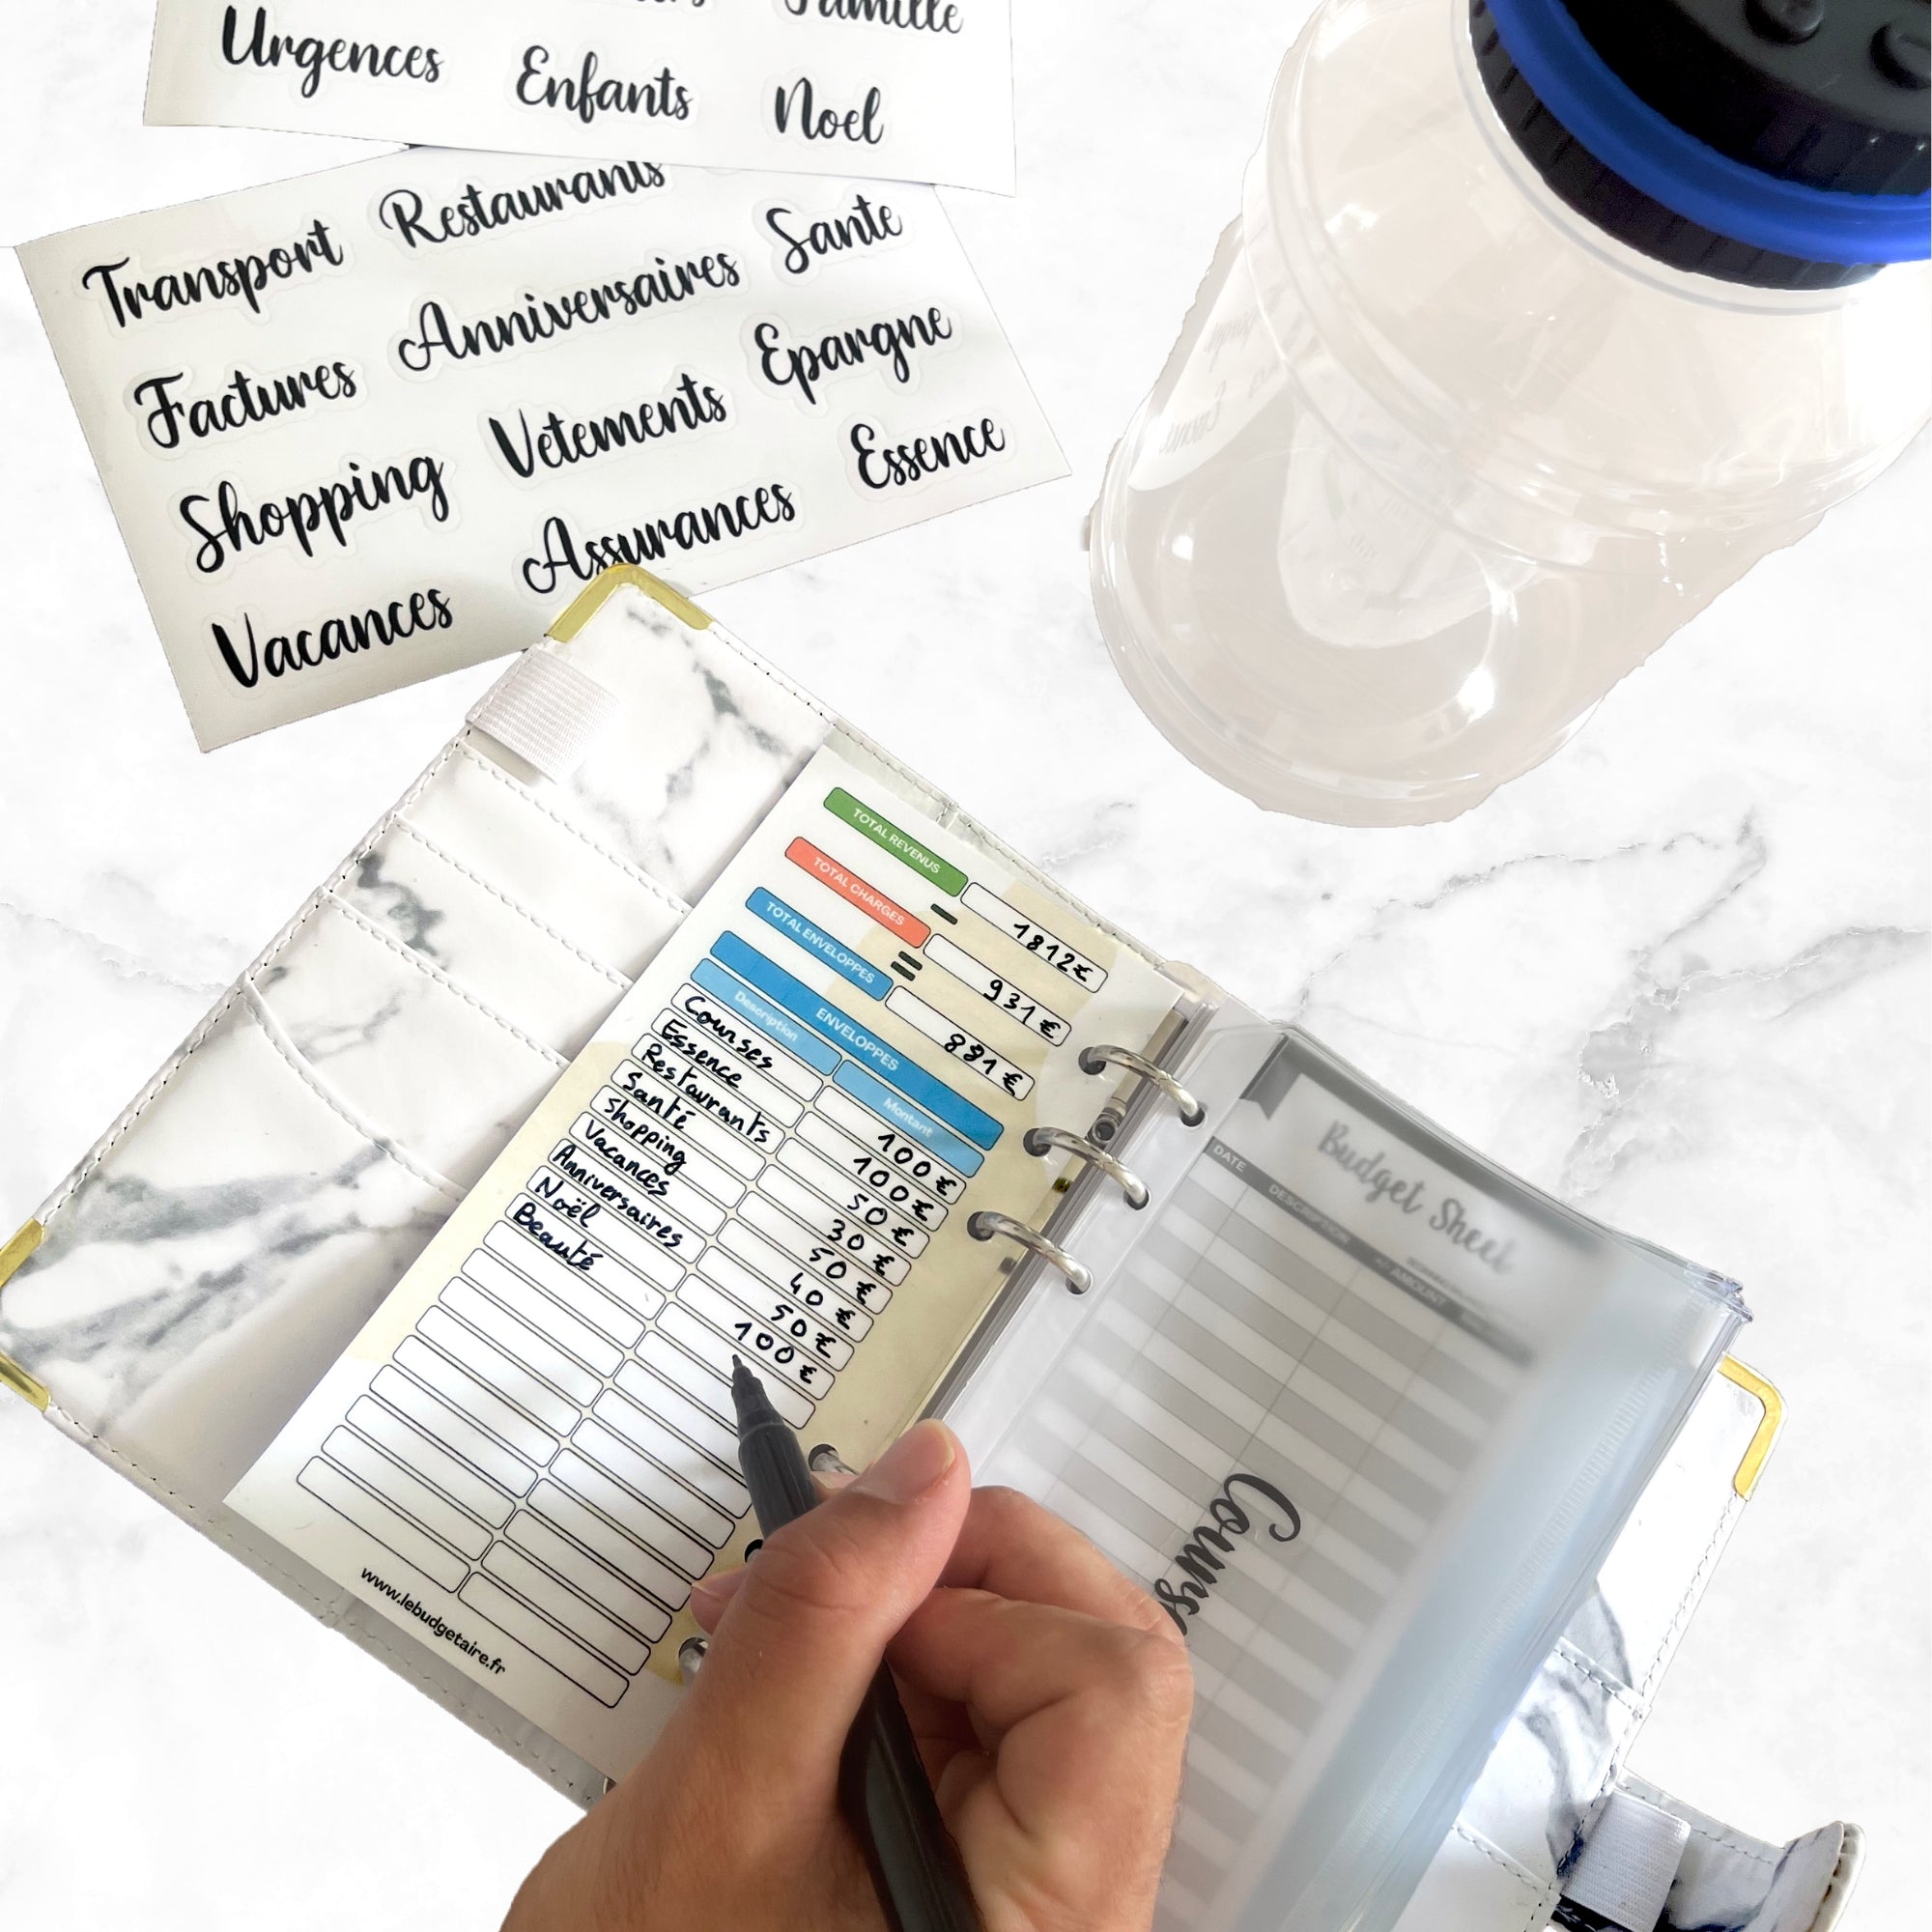 Famille
Urgences Enfants Noel
Transport Restaurants Sante
Factures Anniversaires Epargne
Shopping Vetements Essence
Vacances Assurances
TOTAL REVENUS 1812€
-
TOTAL CHARGES 931€
=
TOTAL ENVELOPPES 881€
ENVELOPPES
Description Montant
Courses 100€
Essence 100€
Restaurants 50€
Santé 30€
Shopping 50€
Vacances 40€
Anniversaires 50€
Noël 100€
Beauté
www.lebudgetaire.fr
Budget Sheet
DATE DESCRIPTION AMOUNT
Course